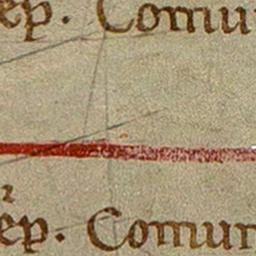 ep. Comu
ep. Comun